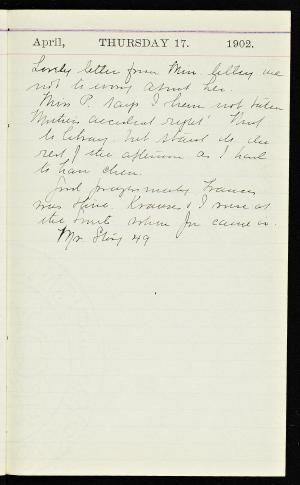 April, THURSDAY 17. 1902.
Lovely letter from Mim. telling me
not to worry about her.
Miss P. says I have not taken
Mother's accident right! Went
to library but staid do the
rest of the afternoon as I had
to have chen.
Good prayer meeting Frances
was here. Krauses & I were at
the when Jim came in.
Mr. 49